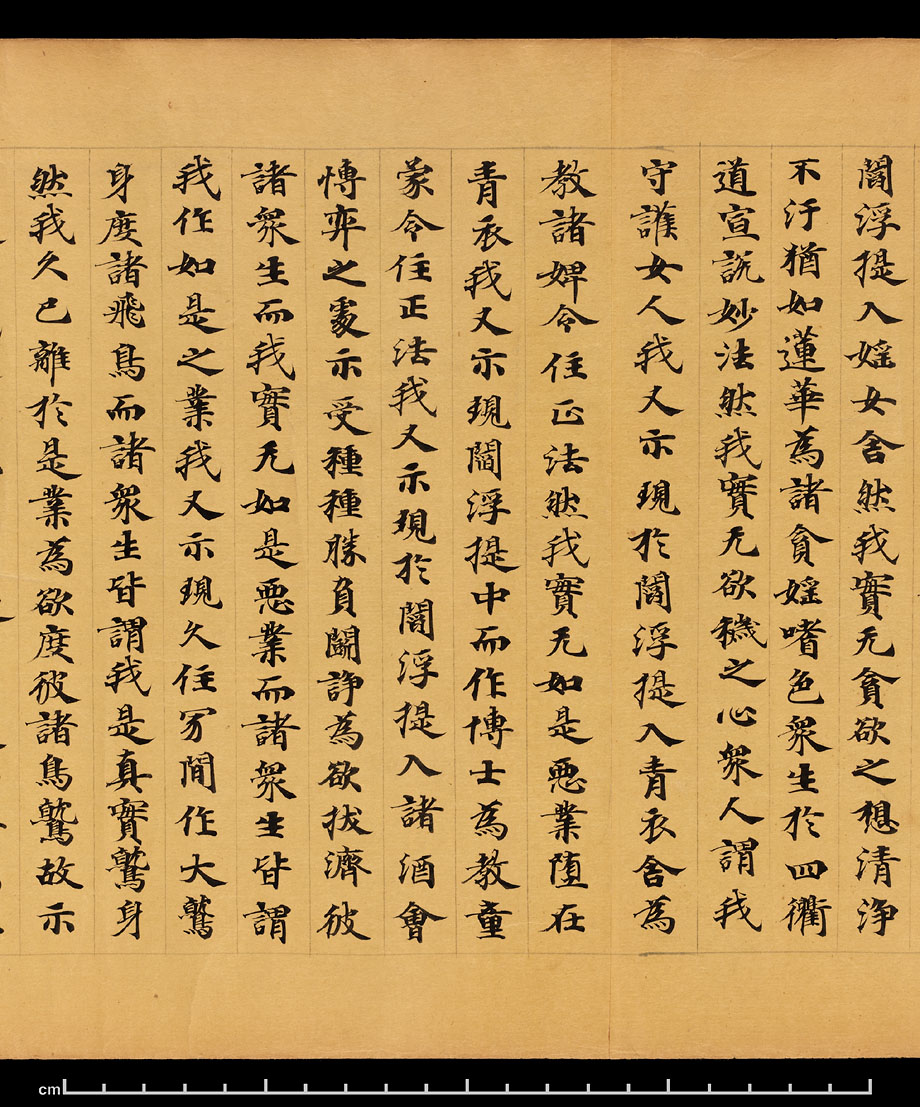 閻浮提入婬女舍然我實无貪欲之想清淨
不汙猶如蓮華為諸貪婬嗜色眾生於四衢
道宣說妙法然我實无欲穢之心眾人謂我
守護女人我又示現於閻浮提入青衣舍為
教諸婢令住正法然我實无如是惡業墮在
青衣我又示現閻浮提中而作博士為教童
蒙令住正法我又示現於閻浮提入諸酒會
博弈之處示受種種勝負鬭諍為欲拔濟彼
諸眾生而我實无如是惡業而諸眾生皆謂
我作如是之業我又示現久住冢間作大鷲
身度諸飛鳥而諸眾生皆謂我是真實鷲身
然我久已離於是業為欲度彼諸鳥鷲故示
cm